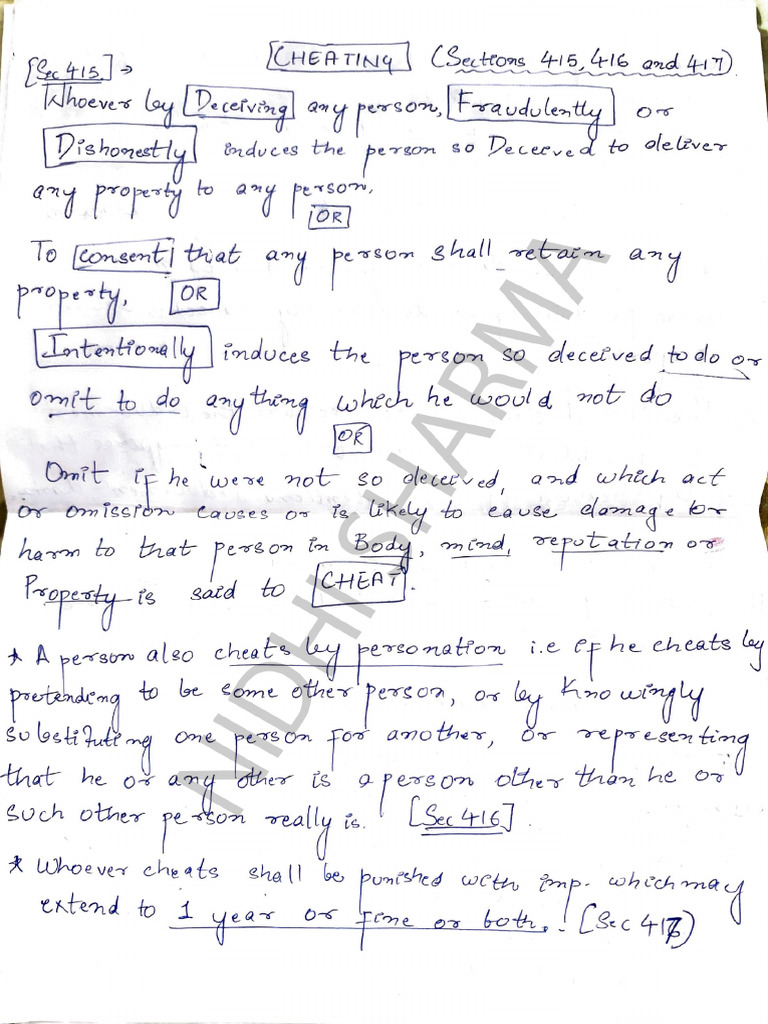 CHEATING (Sections 415, 416 and 417)
[Sec 415] →
Whoever by Deceiving any person, Fraudulently or
Dishonestly induces the person so Deceived to deliver
any property to any person.
OR
To consent that any person shall retain any
property, OR
Intentionally induces the person so deceived to do or
omit to do anything which he would not do
OR
Omit if he were not so deceived, and which act
or omission causes or is likely to cause damage or
harm to that person in Body, mind, reputation or
Property is said to CHEAT.
* A person also cheats by personation i.e if he cheats by
pretending to be some other person, or by knowingly
substituting one person for another, or representing
that he or any other is a person other than he or
such other person really is. [Sec 416].
* Whoever cheats shall be punished with imp. which may
extend to 1 year or fine or both. [Sec 417)
NIDHI SHARMA